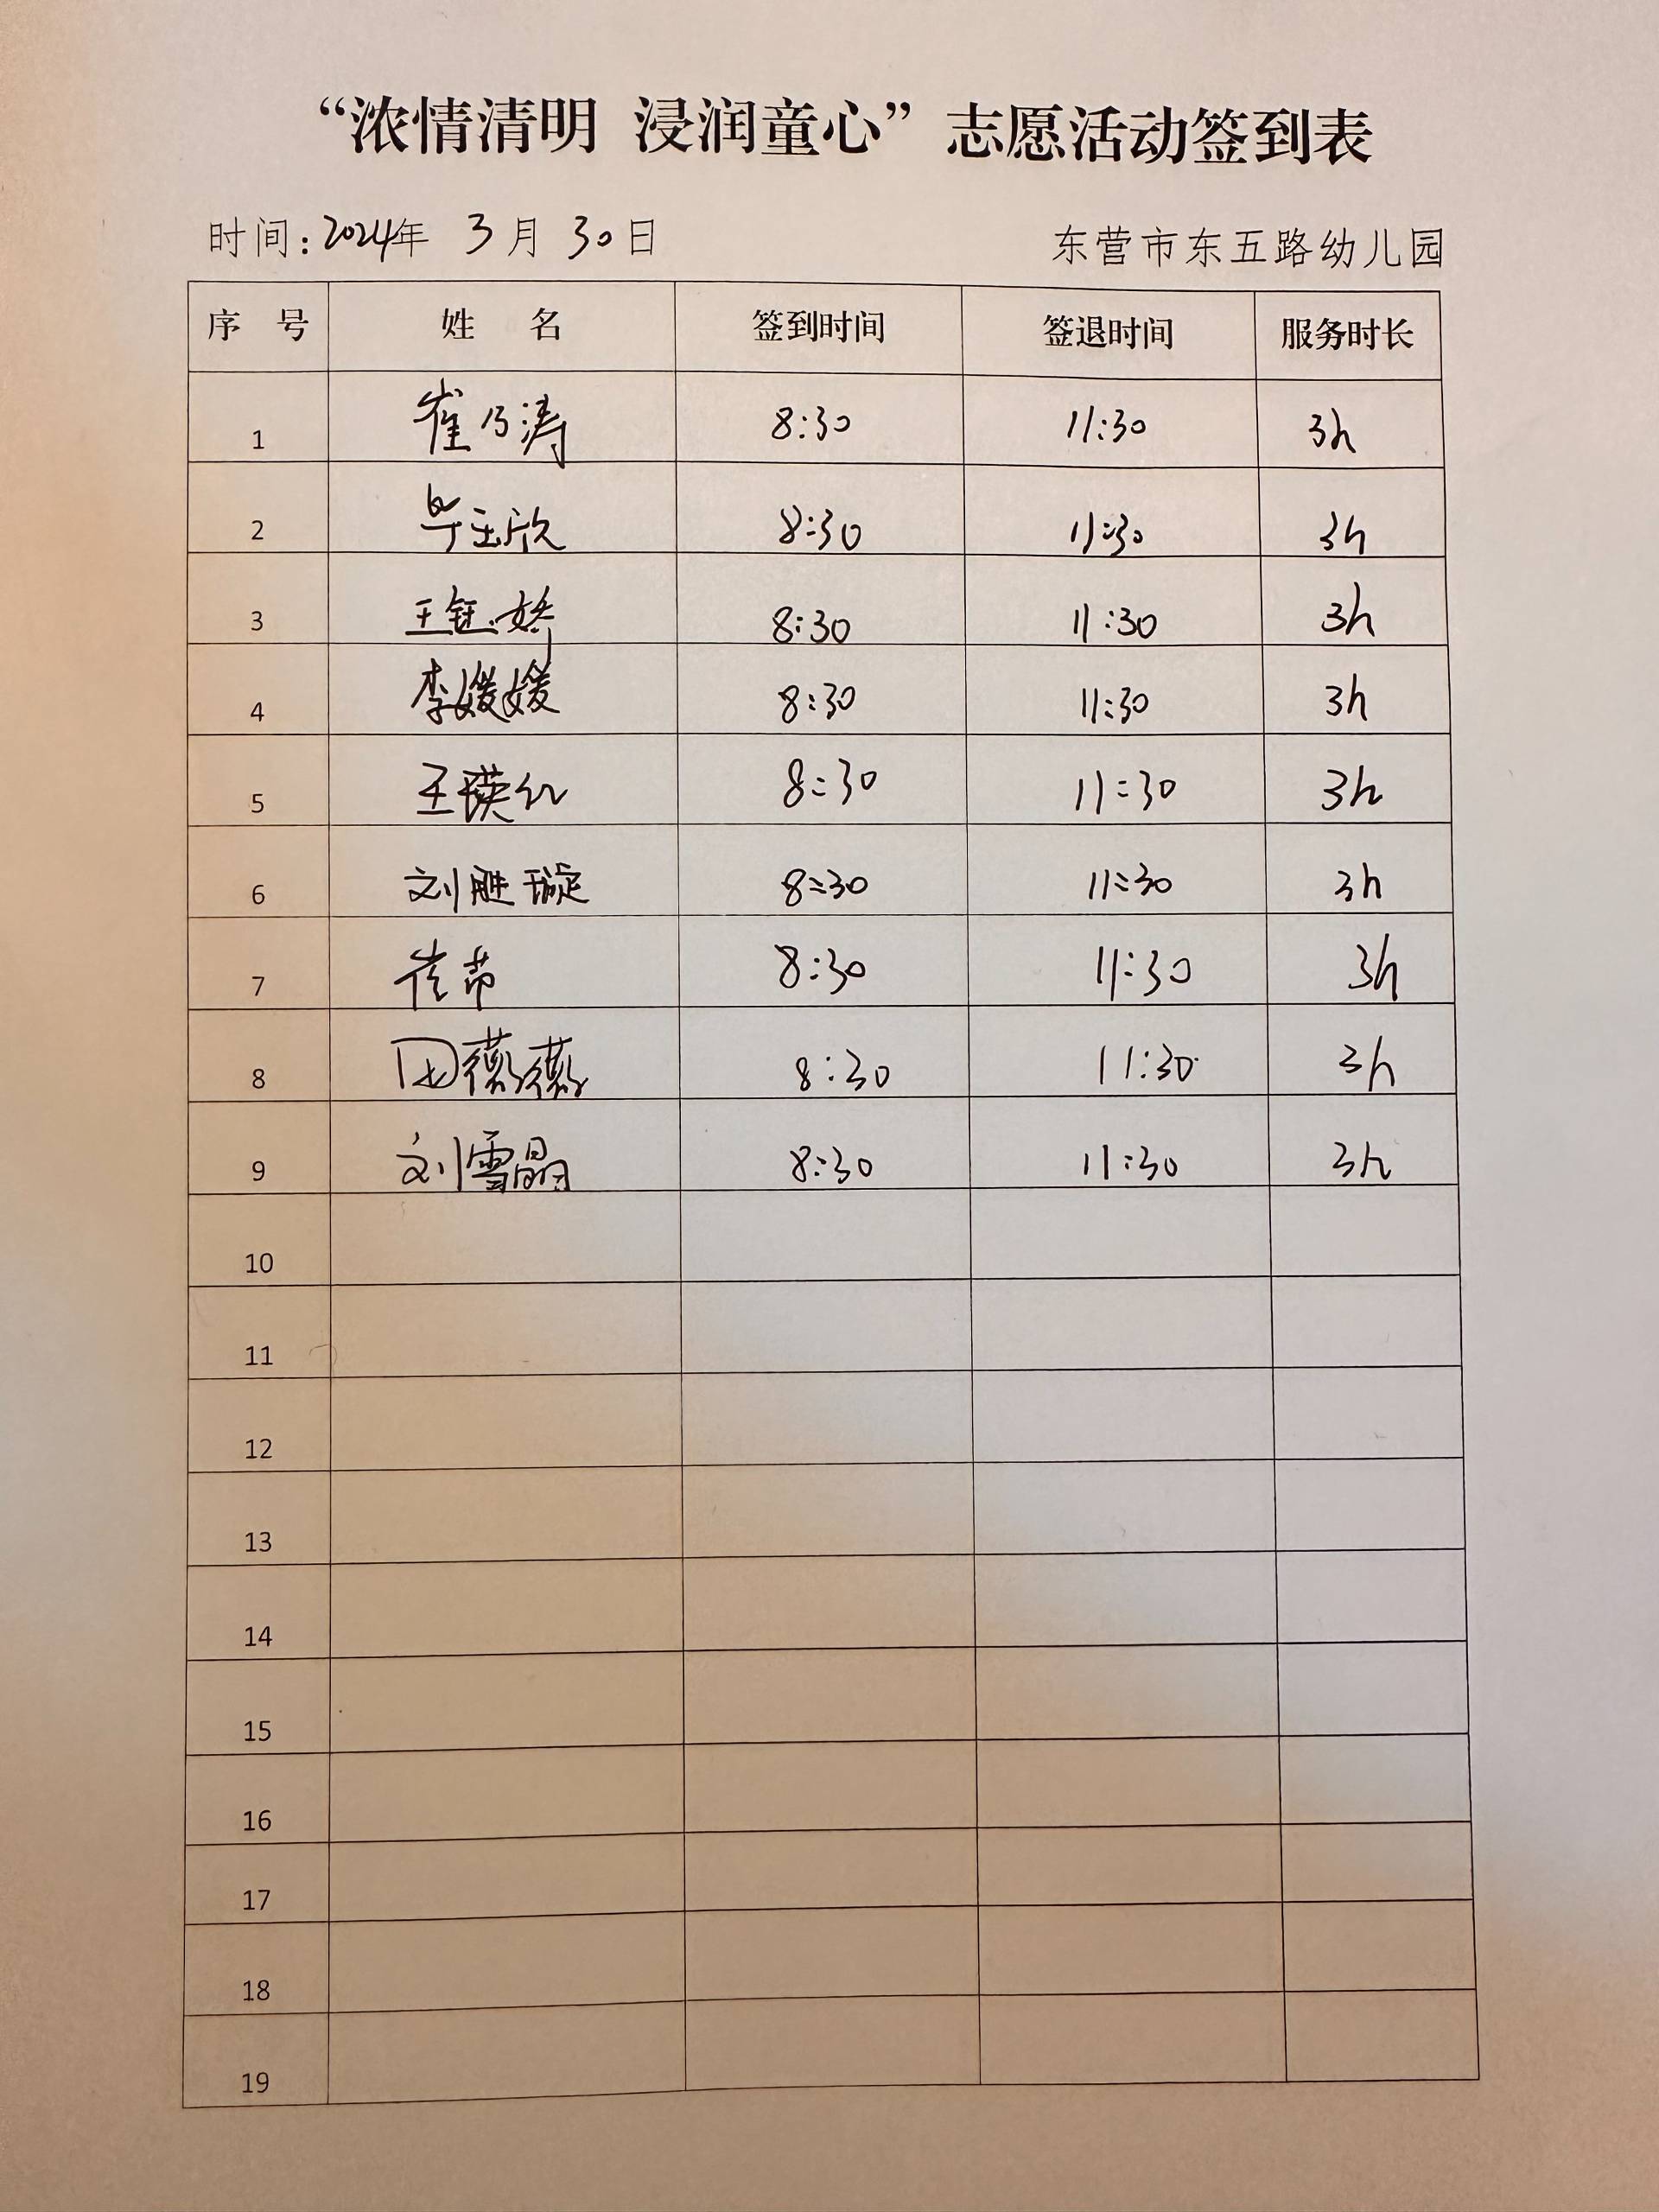 “浓情清明 浸润童心”志愿活动签到表
时间:2024年 3月 30日 东营市东五路幼儿园
序号 姓名 签到时间 签退时间 服务时长
1 崔乃涛 8:30 11:30 3h
2 毕玉欣 8:30 11:30 3h
3 王钰娇 8:30 11:30 3h
4 李媛媛 8:30 11:30 3h
5 王瑛红 8:30 11:30 3h
6 刘胜璇 8:30 11:30 3h
7 崔芾 8:30 11:30 3h
8 田薇薇 8:30 11:30 3h
9 刘雪晶 8:30 11:30 3h
10
11
12
13
14
15
16
17
18
19